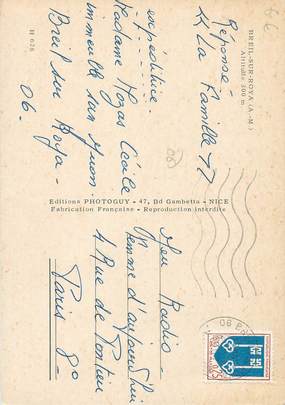 BREIL-SUR-ROYA (A.-M.)
Altitude 300 m
Réponse -
La Famille
expéditrice.
Madame Cécile
immeuble
Breil sur Roya -
06.
H 626
Editions PHOTOGUY - 47, Bd Gambetta - NICE
Fabrication Française - Reproduction interdite
Jeu Radio -
Femme d'aujourd'hui
1 Rue de Ponthieu
Paris 8°
06
66